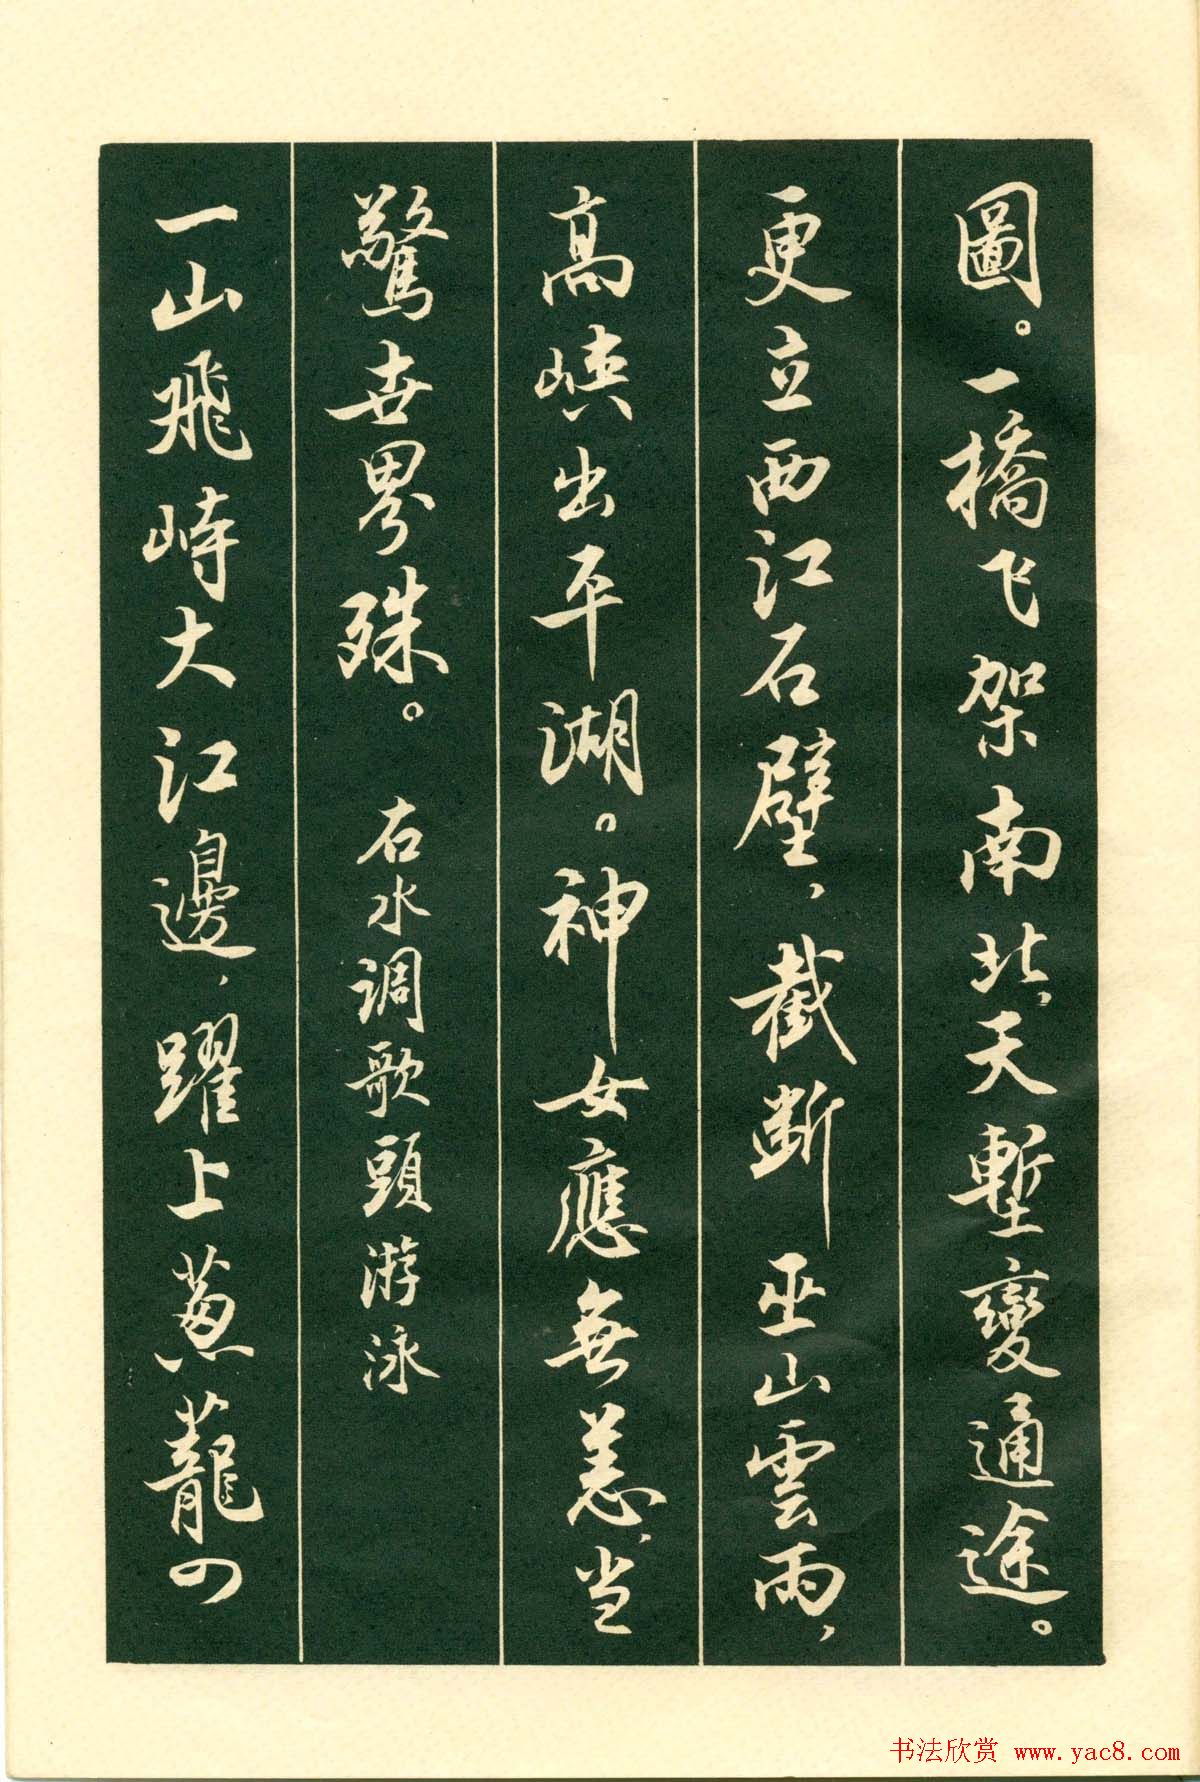 圖。一橋飞架南北，天塹變通途。
更立西江石壁，截断巫山雲雨，
高峽出平湖。神女應無恙，当
驚世界殊。 右水调歌頭游泳
一山飛峙大江邊，躍上葱蘢四
书法欣赏 www.yac8.com